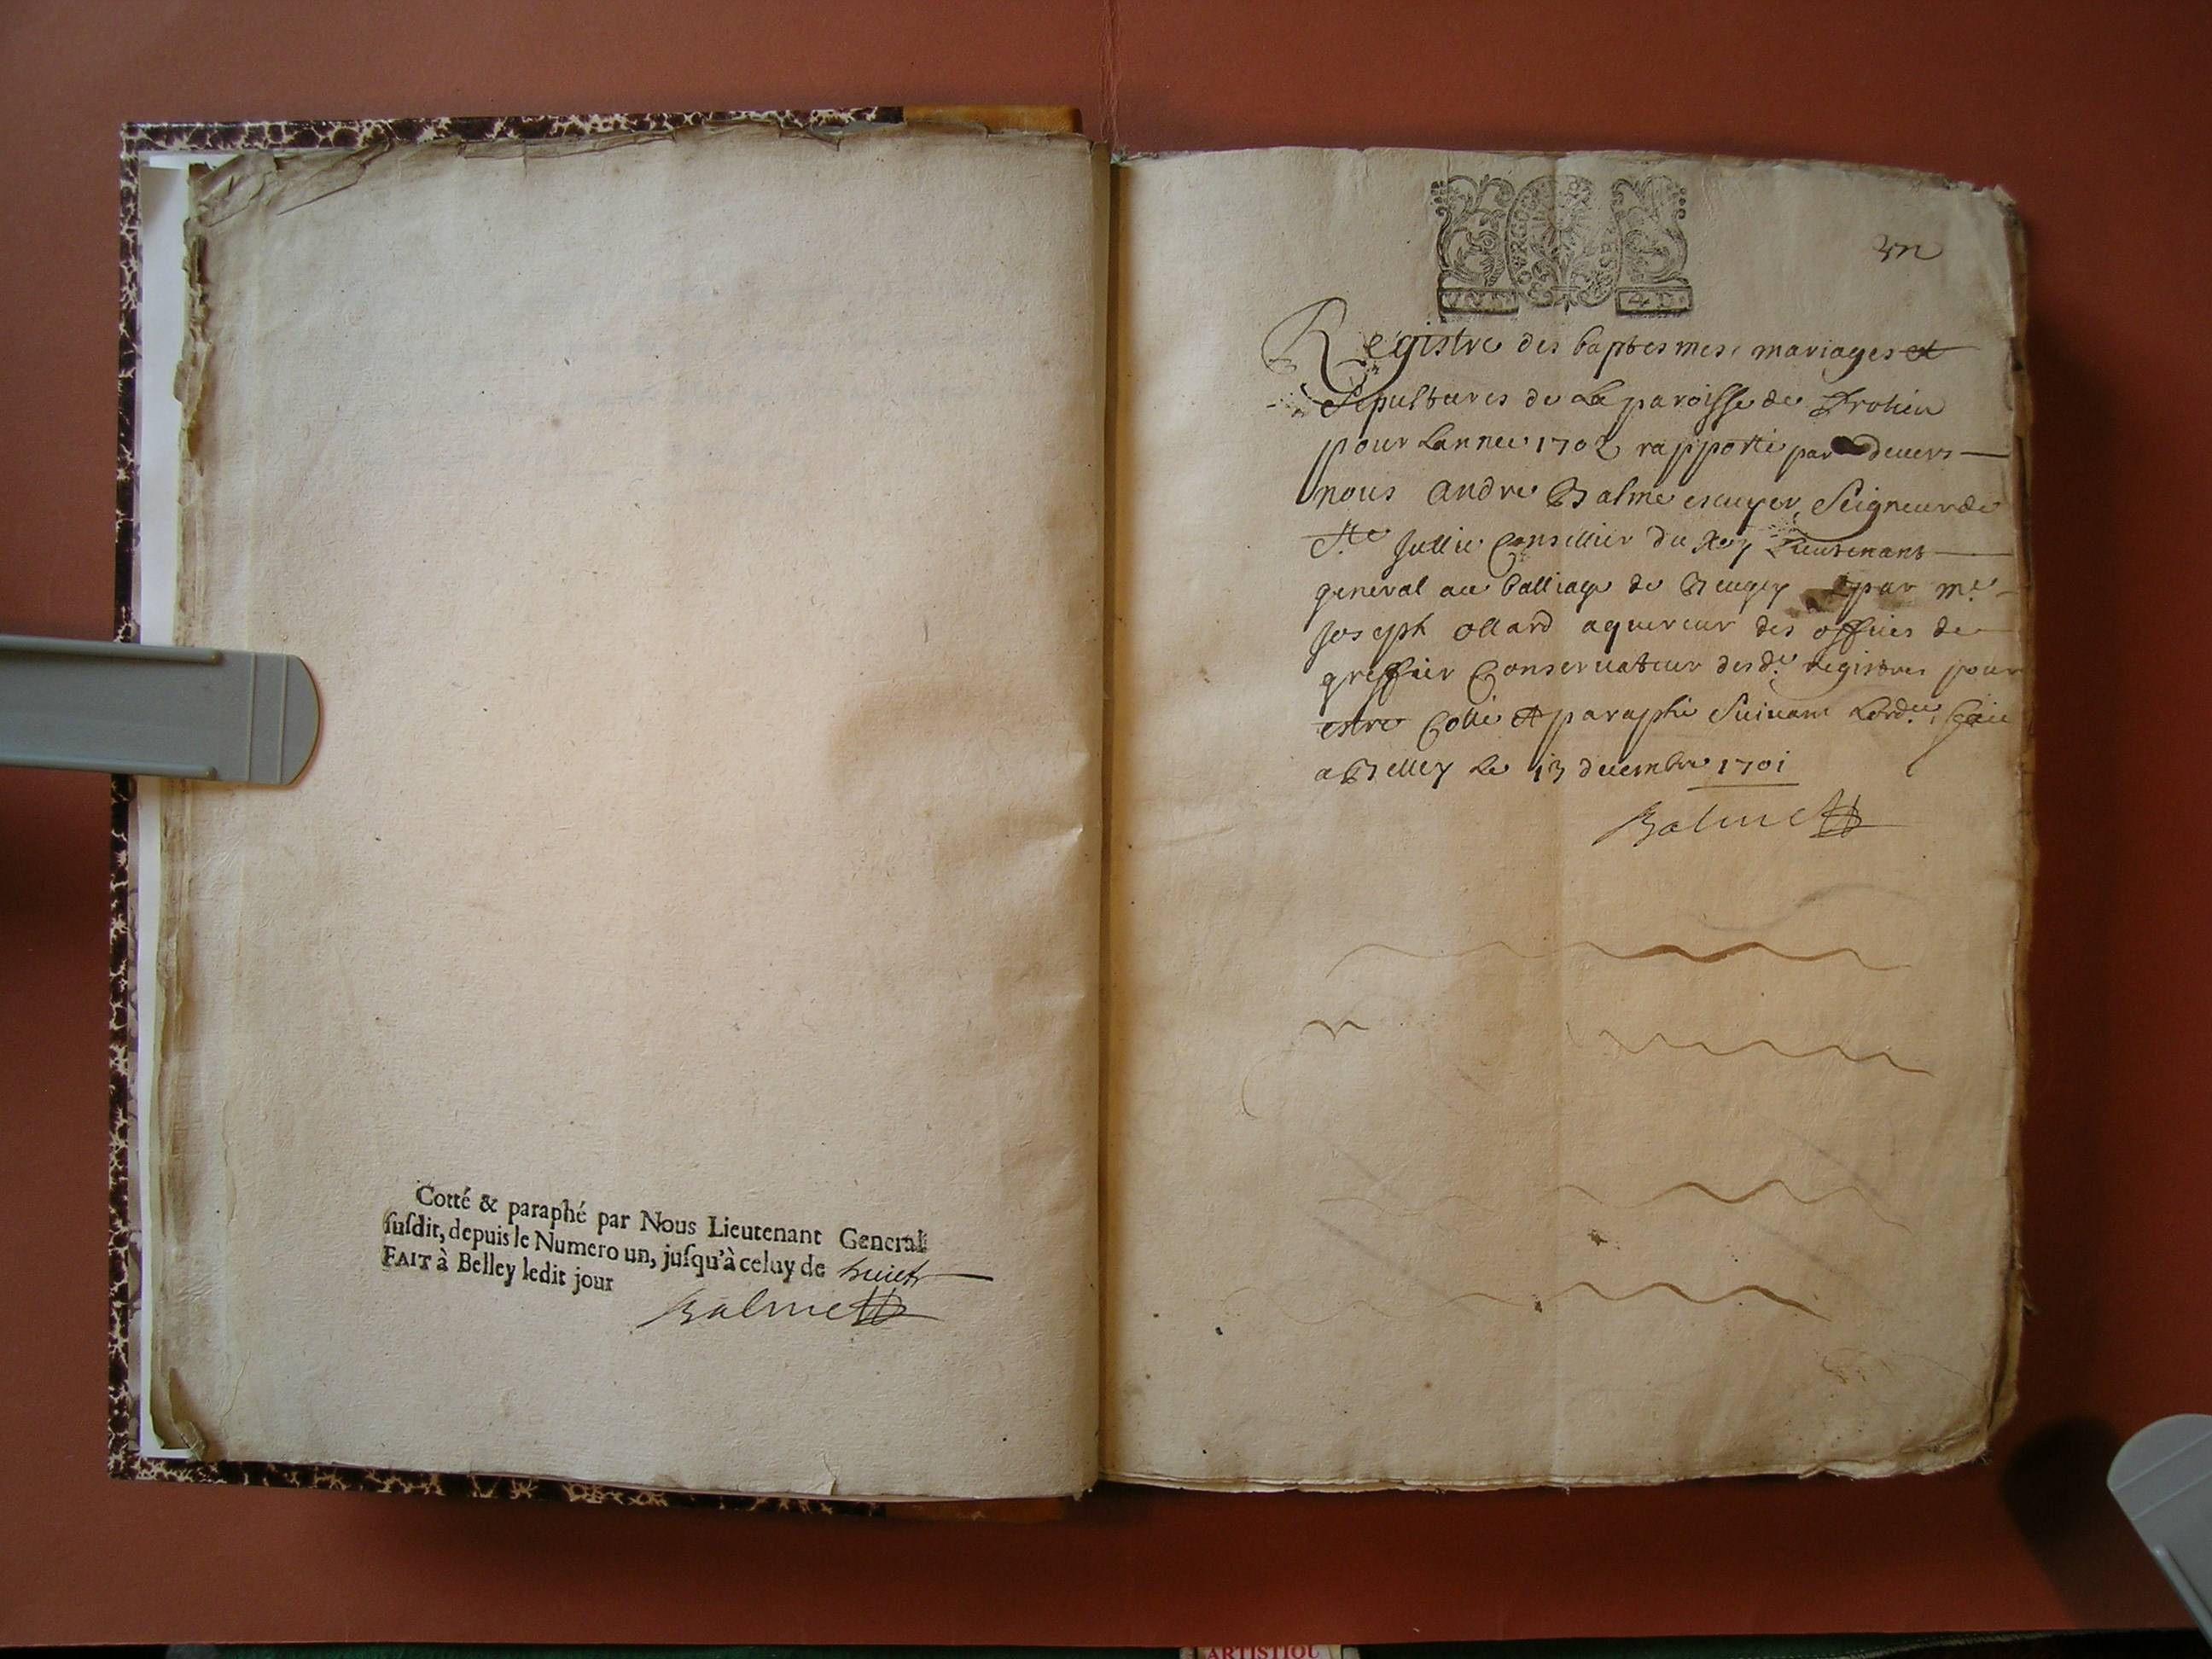 Cotté & paraphé par Nous Lieutenant General
susdit, depuis le Numero un, jusqu'à celuy de huict
FAIT à Belley ledit jour
Balme
un
Registre des baptesmes mariages et
Sepultures de La paroisse de
pour Lannee 1702 rapporté par devers
nous Andre Balme escuyer, Seigneur de
Ste Jullie Conseillier du Roy Lieutenant
general au balliage de Beugey par me
Joseph Ollard aquereur des offices de
greffier Conservateur desd. Registres pour
estre Cotté et paraphé Suivant Lord.ce fait
a Belley Le 13 decembre 1701
Balme
ARTISTIQU